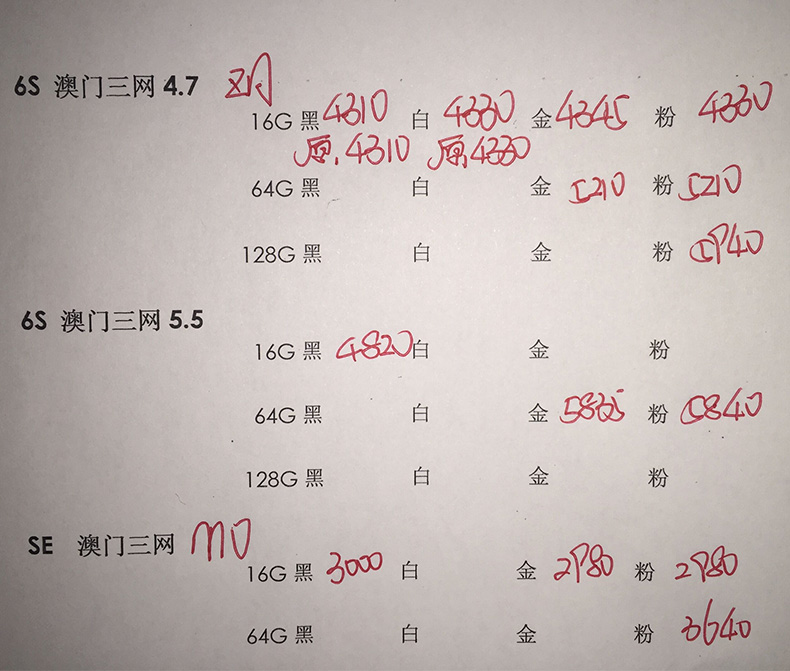 6S 澳门三网 4.7
16G 黑 4310 白 4330 金 4345 粉 4330
原.4310 原.4330
64G 黑 白 金 5210 粉 5210
128G 黑 白 金 粉 5940
6S 澳门三网 5.5
16G 黑 4820 白 金 粉
64G 黑 白 金 5835 粉 5840
128G 黑 白 金 粉
SE 澳门三网
16G 黑 3000 白 金 2980 粉 2980
64G 黑 白 金 粉 3640